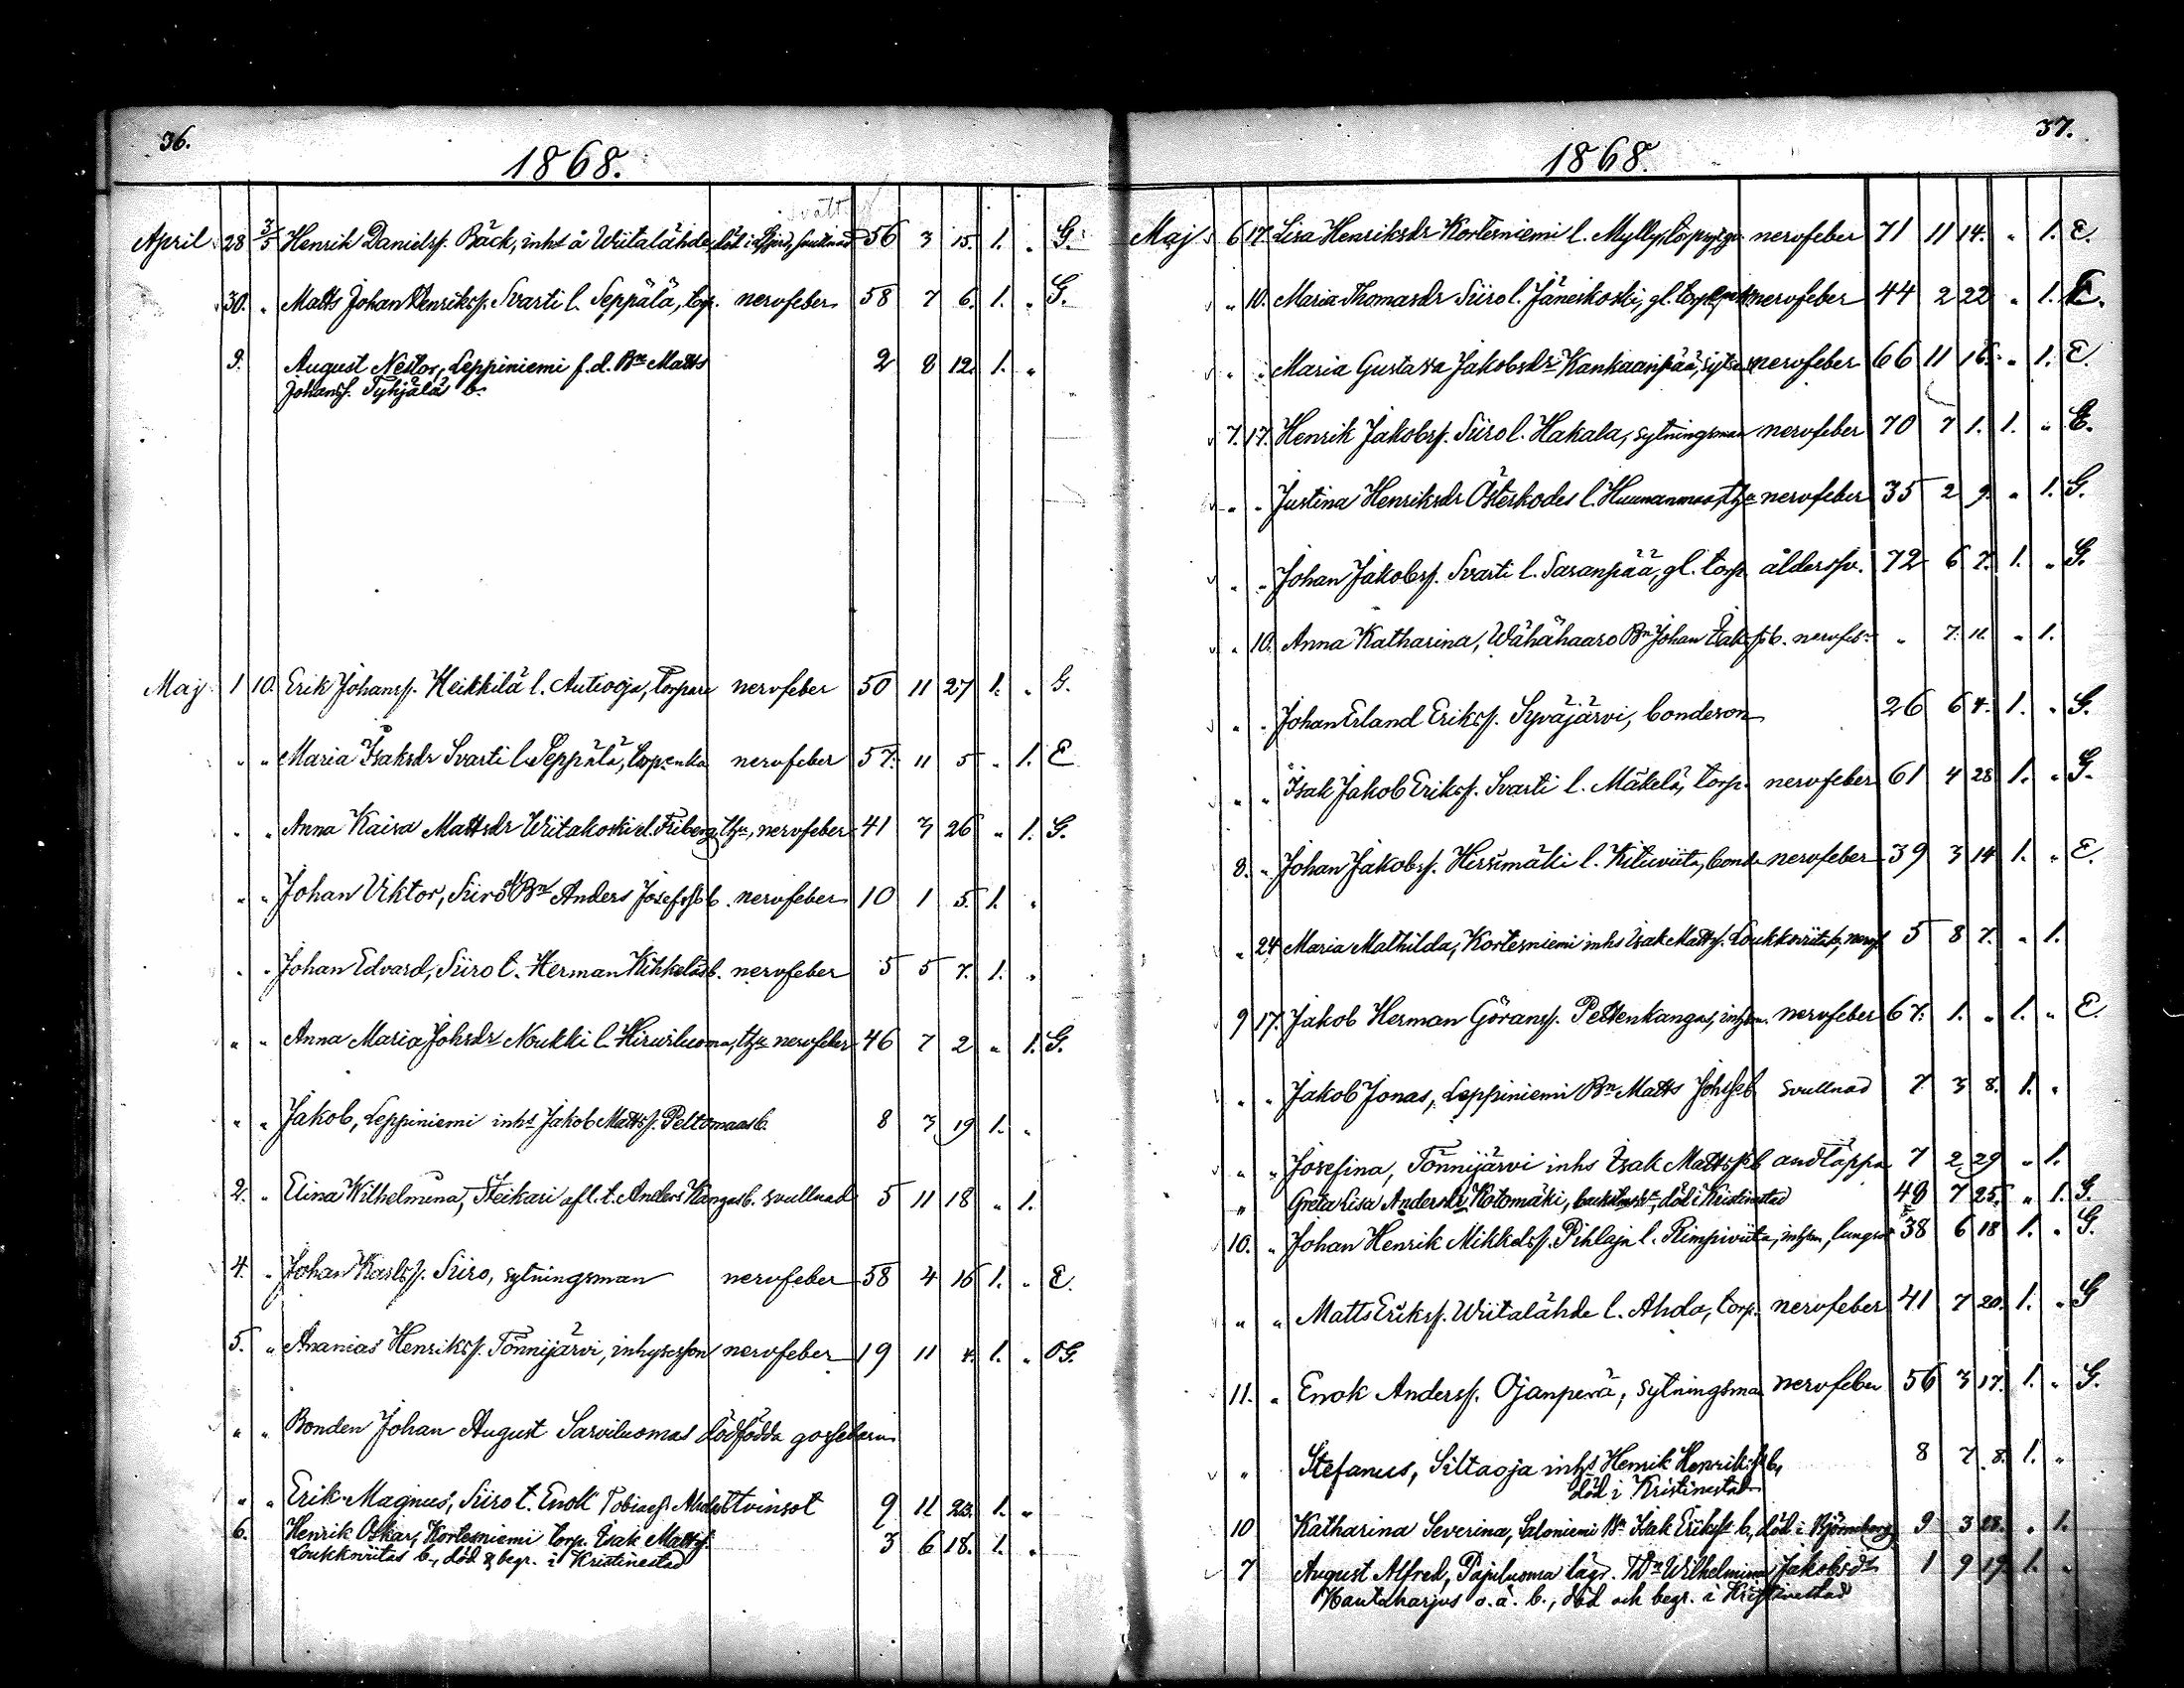 36.
1868.
April 28 3/5 Henrik Danielss. Bäck, inhs å Wiitalähde, död i svullnad 56 3 15. 1. " G.
30. " Matts Johan Henrikss. Svarti l. Seppälä, torp. nervfeber 58 7 6. 1. " G.
9. August Nestor, Leppiniemi f.d. Bn Matts 2 8 12. 1. "
Johanss. Tyhjäläs b.
Maj 1 10. Erik Johanss. Heikkilä l. Autiooja, torpare nervfeber 50 11 27 1. " G.
" " Maria Isaksdr Svarti l. Seppälä, torp.enka nervfeber 57. 11 5 " 1. E
" " Anna Kaisa Mattsdr Wiitakoski l. Friberg, nervfeber 41 3 26 " 1. G.
" " Johan Viktor, Siiro Bn Anders Josefss b. nervfeber 10 1 5. 1. "
" " Johan Edvard, Siiro t. Herman Kihkeläs b. nervfeber 5 5 7. 1. "
" " Anna Maria Johsdr Noukki l. Hirvirluoma, nervfeber 46 7 2 " 1. G.
" " Jakob, Leppiniemi inhs Jakob Mattss. Peltomaas b. 8 3 19 1. "
2. " Elina Wilhelmina, Steikari afl. t. Anders Kangas b. svullnad 5 11 18 " 1.
4. " Johan Karlss. Siiro, sytningsman nervfeber 58 4 16 1. " E.
5. " Ananias Henrikss. Tönnijärvi, inhyseson nervfeber 19 11 4. 1. " OG.
" " Bonden Johan August Sarviluomas dödfödda gossebarn
" " Erik Magnus, Siiro t. Enok Tobiass. Ahdes b tvinsot 9 11 23. 1. "
6. Henrik Oskar, Kortesniemi torp. Isak Mattss. 3 6 18. 1. "
Loukkwiitas b., död & begr. i Kristinestad
37.
1868.
Maj 6 17. Lisa Henriksdr Kortesniemi l. Mylly, nervfeber 71 11 14. " 1. E.
" 10. Maria Thomasdr Siiro l. Jäneskoski, gl. nervfeber 44 2 22 " 1. E.
" " Maria Gustava Jakobsdr Kankaanpää, nervfeber 66 11 16. " 1. E
7. 17. Henrik Jakobss. Siiro l. Hakala, sytningsman nervfeber 70 7 1. 1. " E.
" " Justina Henriksdr Österkodes l. nervfeber 35 2 9. " 1. G.
" " Johan Jakobss. Svarti l. Saranpää, gl. torp. ålderssv. 72 6 7. 1. " G.
" 10. Anna Katharina, Wähähaaro Bn Johan b. nervfebr " 7. 11. " 1.
" " Johan Erland Erikss. Syväjärvi, bondeson 26 6 4. 1. " G.
" " Isak Jakob Erikss. Svarti l. Mäkelä, torp. nervfeber 61 4 28 1. " G.
8. " Johan Jakobss. Hirsimäki l. Kituviita, bonde nervfeber 39 3 14 1. " E.
" 24 Maria Mathilda, Kortesniemi inhs Isak Mattss. Loukkwiitas b, nervf 5 8 7. " 1.
9 17. Jakob Herman Göranss. Pettenkangas, nervfeber 67. 1. " 1. " E.
" " Jakob Jonas, Leppiniemi Bn Matts Johss b svullnad 7 3 8. 1. "
" " Josefina, Tönnijärvi inhs Isak Mattss b andtäppa 7 2 29 " 1.
" Greta Lisa Andersdr Kotomäki, död i Kristinestad 48 7 25. " 1. G.
10. " Johan Henrik Mikkelss. Pihlaja l. Rimpiviita, lungsot 38 6 18 1. " G.
" " Matts Erikss. Wiitalähde l. Ahdo, torp. nervfeber 41 7 20. 1. " G
11. " Enok Anderss. Ojanperä, sytningsman nervfeber 56 3 17. 1. " G.
" Stefanus, Siltaoja inhs Henrik Henrikss b, 8 7 8. 1. "
död i Kristinestad
10 Katharina Severina, Saloniemi Bn Isak Erikss b, död i Björneborg 9 3 28. " 1.
7 August Alfred, Pajuluoma lägr. Wilhelmina Jakobsdr 1 9 19. 1. "
Hautaharjus o.ä. b., död och begr. i Kristinestad